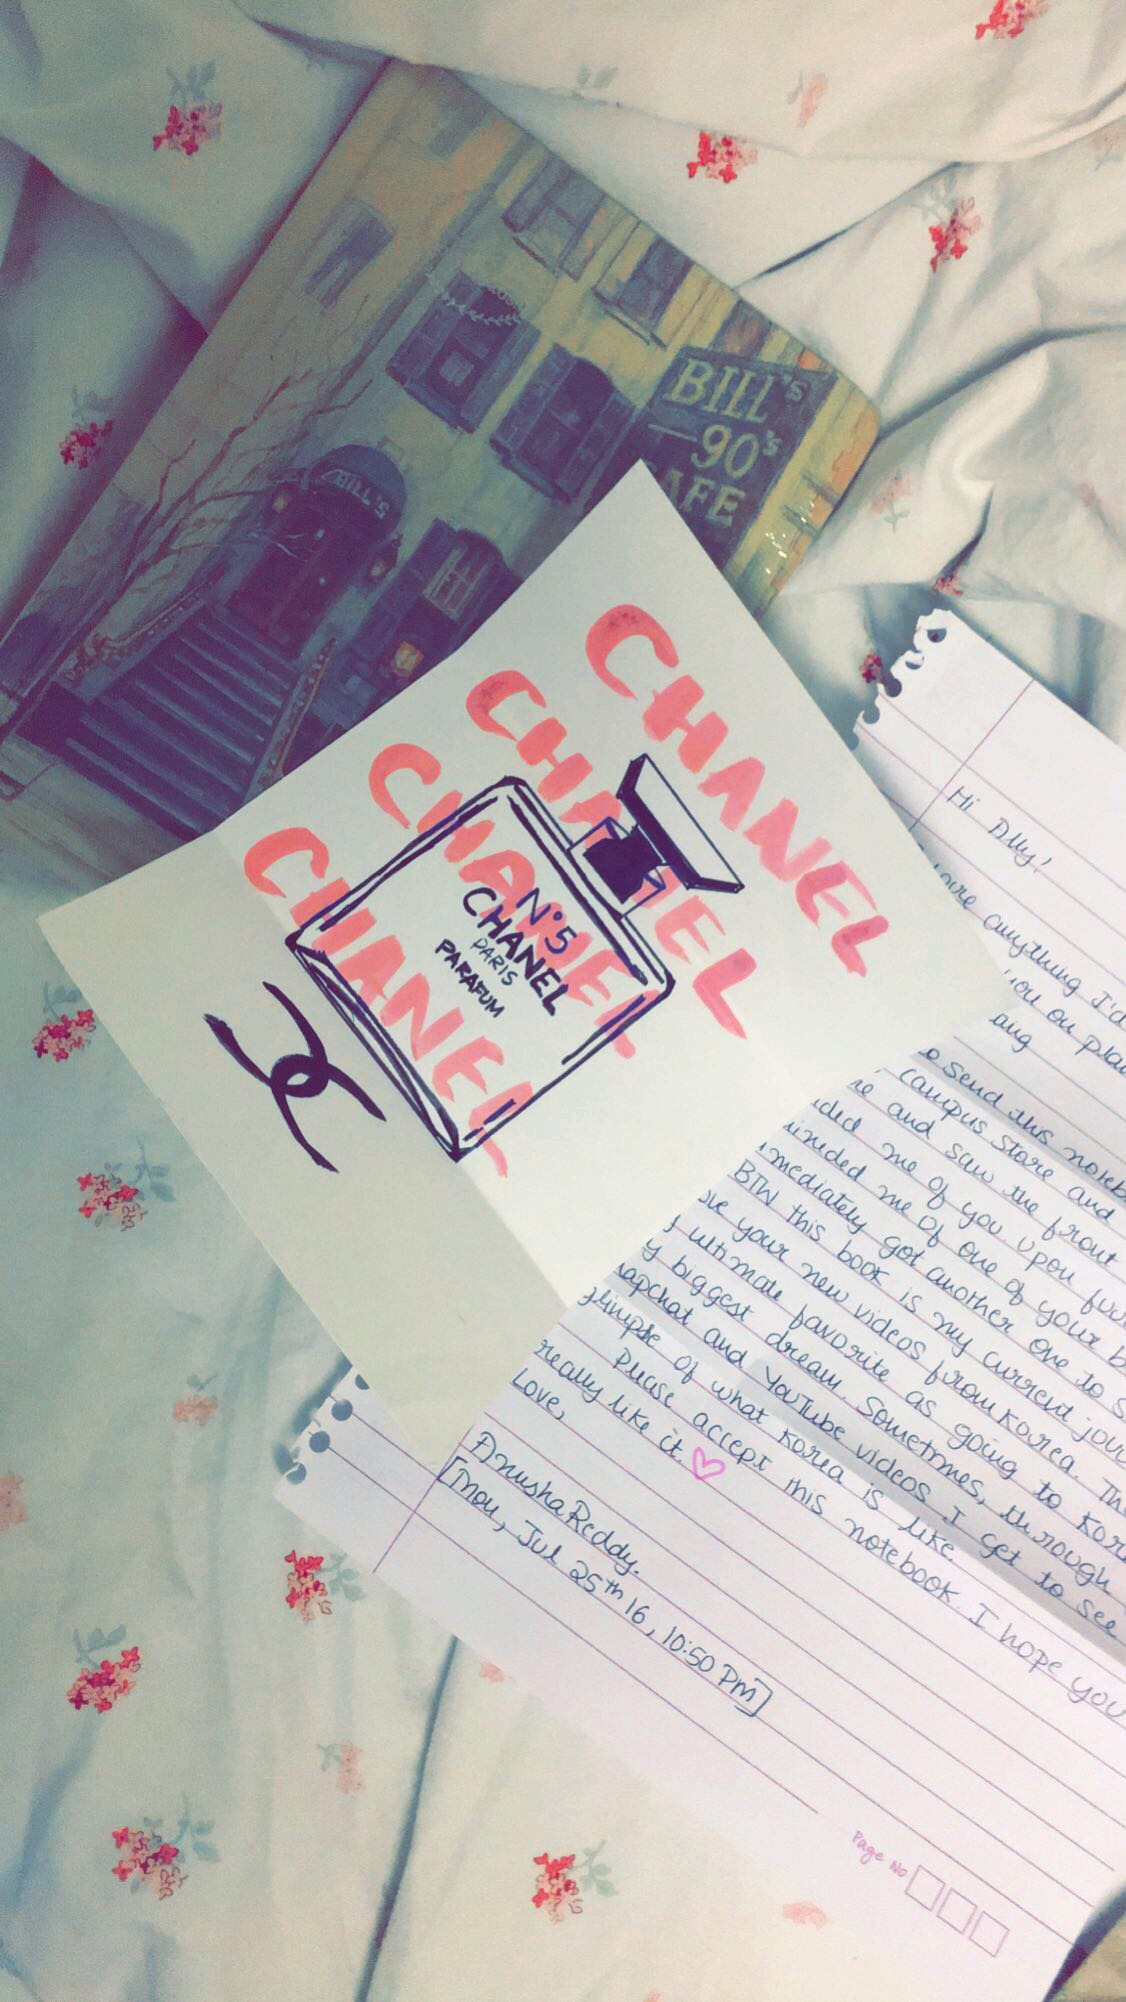 BILL's
90's
CAFE
BILL'S
CHANEL
CHANEL
CHANEL
CHANEL
N°5
CHANEL
PARIS
PARAFUM
Hi Ally!
anything I'd
you on
send this
campus store and
and saw the front
me of you upon
minded me of one of your
mmediately got another one to
BTW this book is my current
your new videos from Korea.
ultimate favorite as going to
biggest dream. Sometimes, through
and YouTube videos I get to see
glimpse of what Korea is like.
Please accept this notebook. I hope you
really like it.
Love,
Anusha Reddy.
[Mon, Jul 25th 16, 10:50 PM]
Page No